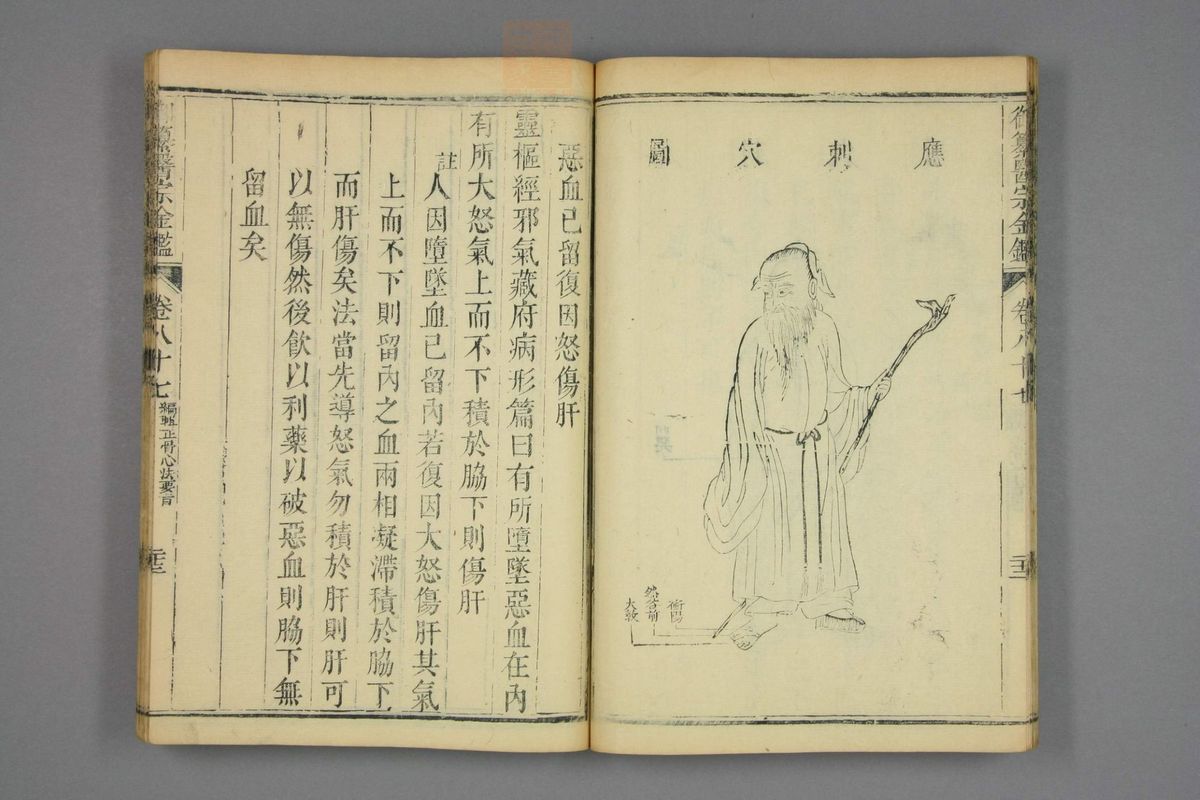 御纂醫宗金鑑
卷八十七
應刺穴圖
衝陽
然谷前
大敦
惡血已留復因怒傷肝
靈樞經邪氣藏府病形篇曰有所墮墜惡血在內
有所大怒氣上而不下積於脇下則傷肝
註人因墮墜血已留內若復因大怒傷肝其氣
上而不下則留內之血兩相凝滯積於脇下
而肝傷矣法當先導怒氣勿積於肝則肝可
以無傷然後飲以利藥以破惡血則脇下無
留血矣
纂醫宗金鑑
卷八十七
編輯正骨心法要旨